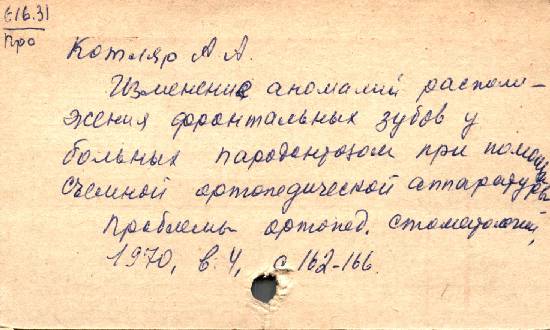 616.31
Про
Котляр А А.
Изменение аномалий располо-
жения фронтальных зубов у
больных пародонтозом при помощи
съемной ортопедической аппаратуры
Проблемы ортопед. стоматологии,
1970, в. 4, с 162-166.